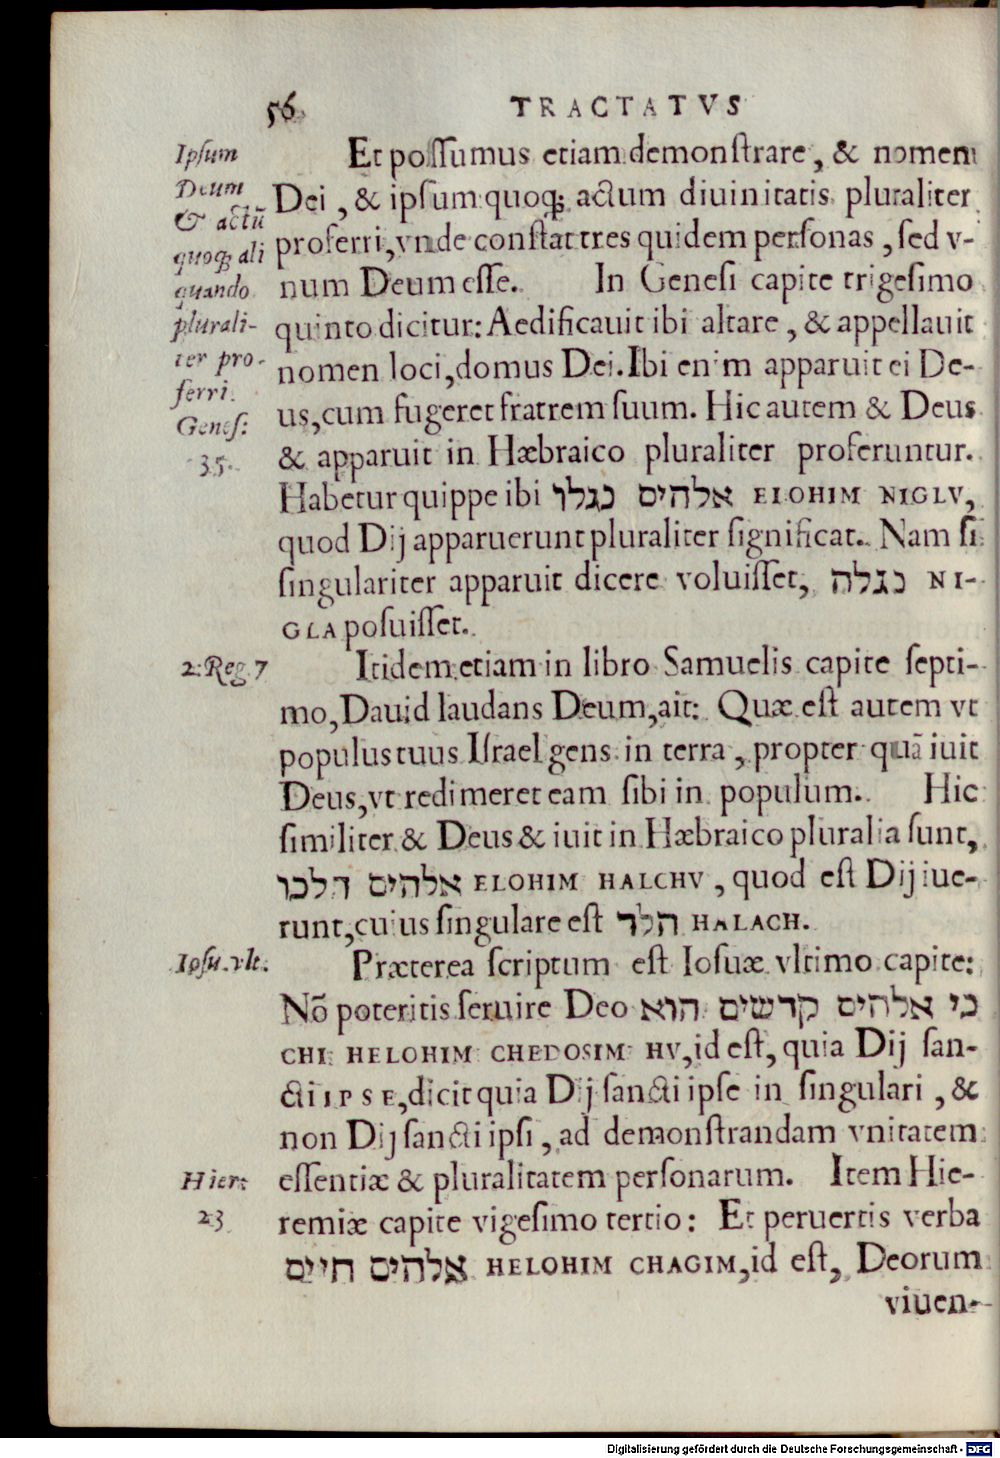 56
TRACTATVS
Ipsum
Deum
& actū
quoq; ali
quando
plurali-
ter pro-
ferri.
Genes:
35.
Et possumus etiam demonstrare, & nomen
Dei, & ipsum quoq; actum diuinitatis pluraliter
proferri, vnde constat tres quidem personas, sed v-
num Deum esse. In Genesi capite trigesimo
quinto dicitur: Aedificauit ibi altare, & appellauit
nomen loci, domus Dei. Ibi enim apparuit ei De-
us, cum fugeret fratrem suum. Hic autem & Deus
& apparuit in Hæbraico pluraliter proferuntur.
Habetur quippe ibi אלהים נגלו ELOHIM NIGLV,
quod Dij apparuerunt pluraliter significat. Nam si
singulariter apparuit dicere voluisset, נגלה NI-
GLA posuisset.
2. Reg. 7
Itidem etiam in libro Samuelis capite septi-
mo, Dauid laudans Deum, ait: Quæ est autem vt
populus tuus Israel gens in terra, propter quā iuit
Deus, vt redimeret eam sibi in populum. Hic
similiter & Deus & iuit in Hæbraico pluralia sunt,
אלהים הלכו ELOHIM HALCHV, quod est Dij iue-
runt, cuius singulare est הלך HALACH.
Iosu. vlt.
Præterea scriptum est Iosuæ vltimo capite:
Nō poteritis seruire Deo כי אלהים קדשים הוא
CHI HELOHIM CHEDOSIM HV, id est, quia Dij san-
cti IPSE, dicit quia Dij sancti ipse in singulari, &
non Dij sancti ipsi, ad demonstrandam vnitatem
essentiæ & pluralitatem personarum. Item Hie-
Hier:
23
remiæ capite vigesimo tertio: Et peruertis verba
אלהים חיים HELOHIM CHAGIM, id est, Deorum
viuen-
Digitalisierung gefördert durch die Deutsche Forschungsgemeinschaft - DFG